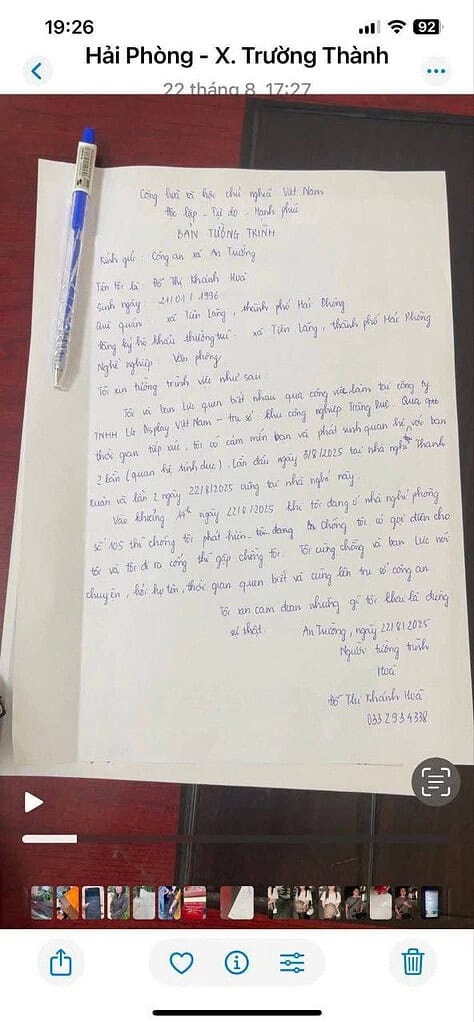 19:26
92
Hải Phòng - X. Trường Thành
22 tháng 8 17:27
Cộng hoà xã hội chủ nghĩa Việt Nam
Độc lập - Tự do - Hạnh phúc
BẢN TƯỜNG TRÌNH
Kính gửi: Công an xã An Trường
Tên tôi là: Đỗ Thị Khánh Hoà
Sinh ngày 21/01/1996
Quê quán xã Tiên Lãng, thành phố Hải Phòng
Đăng ký hộ khẩu thường trú: xã Tiên Lãng, thành phố Hải Phòng
Nghề nghiệp: Văn phòng
Tôi xin tường trình việc như sau:
Tôi và bạn Lực quen biết nhau qua công việc làm tại công ty
TNHH LG Display Việt Nam - trụ sở: khu công nghiệp Tràng Duệ. Qua
thời gian tiếp xúc, tôi có cảm mến bạn và phát sinh quan hệ với bạn
2 lần (quan hệ tình dục). Lần đầu ngày 3/8/2025 tại nhà nghỉ Thanh
Xuân và lần 2 ngày 22/8/2025 cũng tại nhà nghỉ này.
Vào khoảng 14h ngày 22/8/2025 khi tôi đang ở nhà nghỉ phòng
số 105 thì chồng tôi phát hiện tôi đang Chồng tôi có gọi điện cho
tôi và tôi đi ra cổng thì gặp chồng tôi. Tôi cùng chồng và bạn Lực nói
chuyện, hỏi họ tên, thời gian quen biết và cùng lên trụ sở công an.
Tôi xin cam đoan những gì tôi khai là đúng
sự thật.
An Trường, ngày 22/8/2025
Người tường trình
Hoà
Đỗ Thị Khánh Hoà
033 293 4338